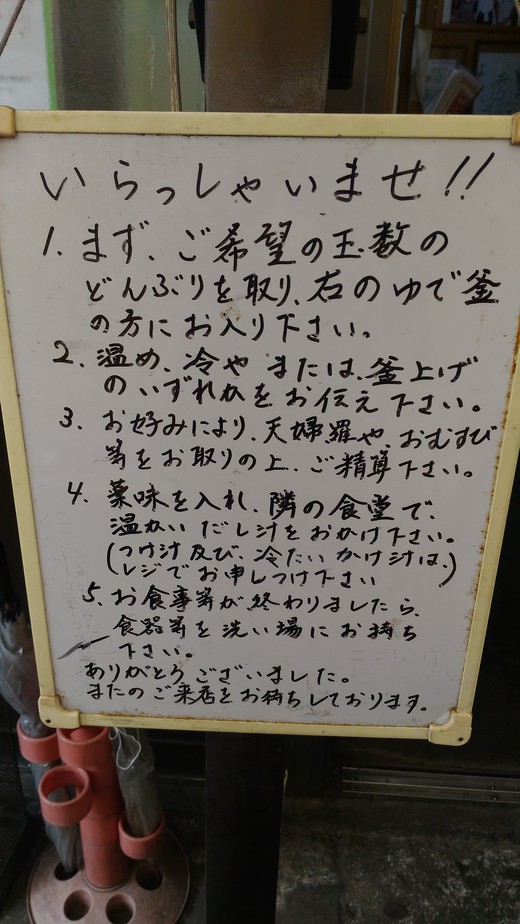 いらっしゃいませ!!
1. まず、ご希望の玉数の
どんぶりを取り、右のゆで釜
の方にお入り下さい。
2. 温め、冷や または、釜上げ
のいずれかをお伝え下さい。
3. お好みにより、天婦羅や、おむすび
等をお取りの上、ご精算下さい。
4. 薬味を入れ、隣の食堂で、
温かいだし汁をおかけ下さい。
(つけ汁及び、冷たいかけ汁は、
レジでお申しつけ下さい)
5. お食事等が終わりましたら、
食器等を洗い場にお持ち
下さい。
ありがとうございました。
またのご来店をお待ちしております。